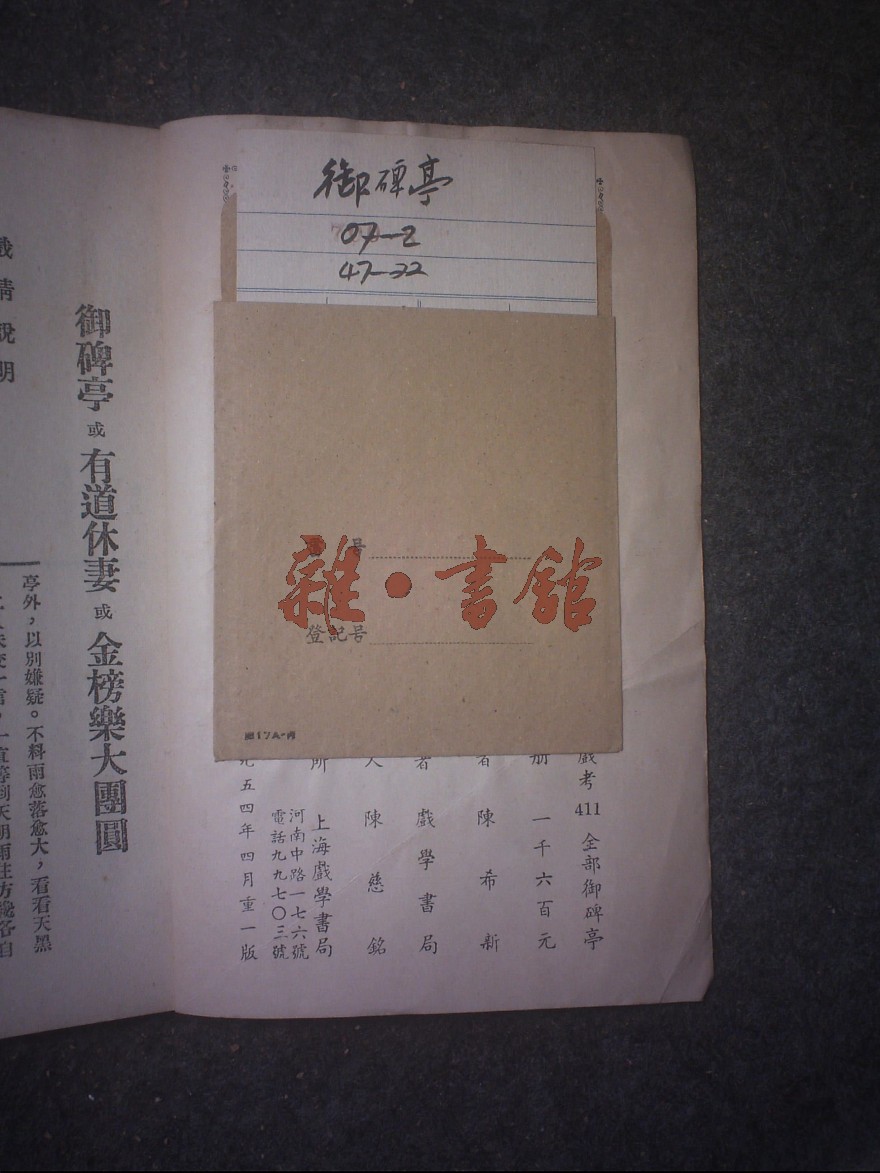 御碑亭
07-2
47-22
号
登記号
雜·書館
戲考 411 全部御碑亭
册 一千六百元
者 陳希新
者 戲學書局
人 陳慈銘
所 上海戲學書局
河南中路一七六號
電話九九七〇三號
九五四年四月重一版
戲情說明
御碑亭 或 有道休妻 或 金榜樂大團圓
亭外，以別嫌疑。不料雨愈落愈大，看看天黑
一直等到天明雨住方纔各自